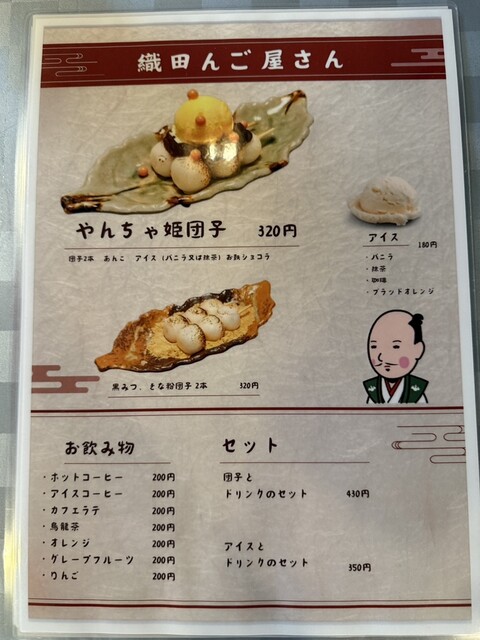 織田んご屋さん
やんちゃ姫団子 320円
団子2本 あんこ アイス(バニラ又は抹茶) お麩ショコラ
アイス 180円
・バニラ
・抹茶
・珈琲
・ブラッドオレンジ
黒みつ、きな粉団子2本 320円
お飲み物
・ホットコーヒー 200円
・アイスコーヒー 200円
・カフェラテ 200円
・烏龍茶 200円
・オレンジ 200円
・グレープフルーツ 200円
・りんご 200円
セット
団子と
ドリンクのセット 430円
アイスと
ドリンクのセット 350円